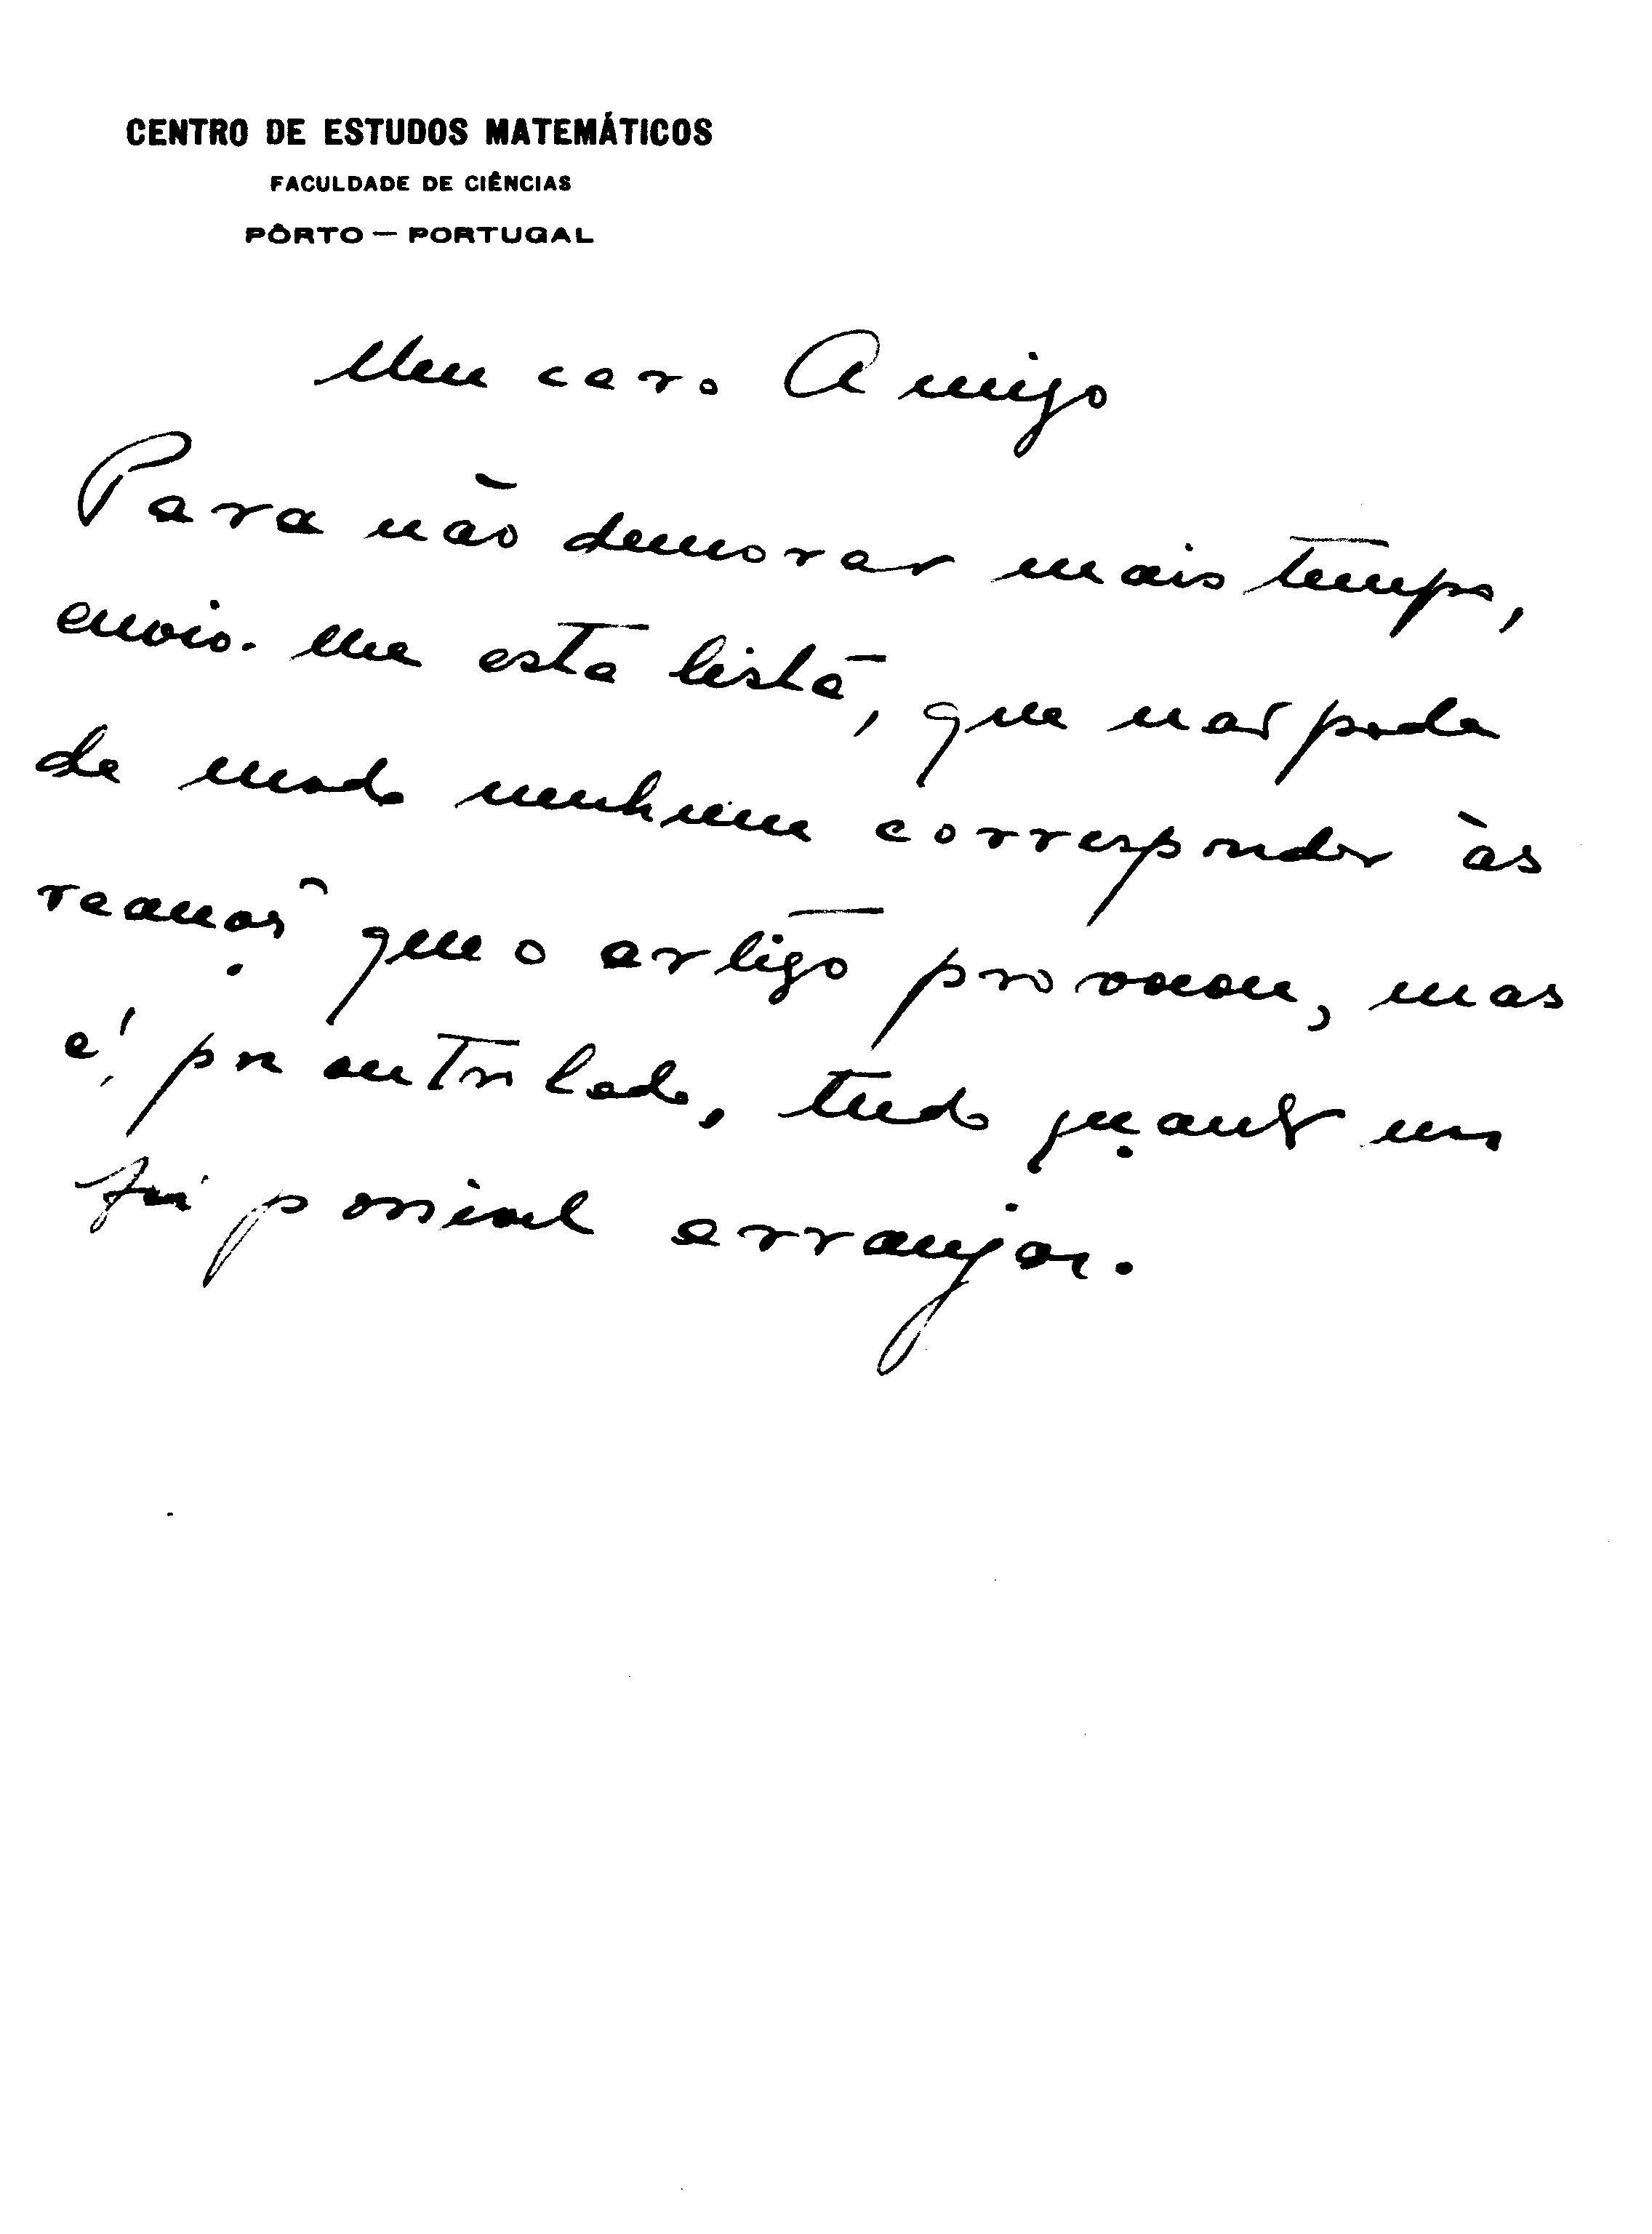 CENTRO DE ESTUDOS MATEMÁTICOS
FACULDADE DE CIÊNCIAS
PÔRTO — PORTUGAL
Meu caro Amigo
Para não demorar mais tempo,
envio-lhe esta lista, que não pode
de modo nenhum corresponder às
reações que o artigo provocou, mas
é, por outro lado, tudo quanto me
foi possivel arranjar.